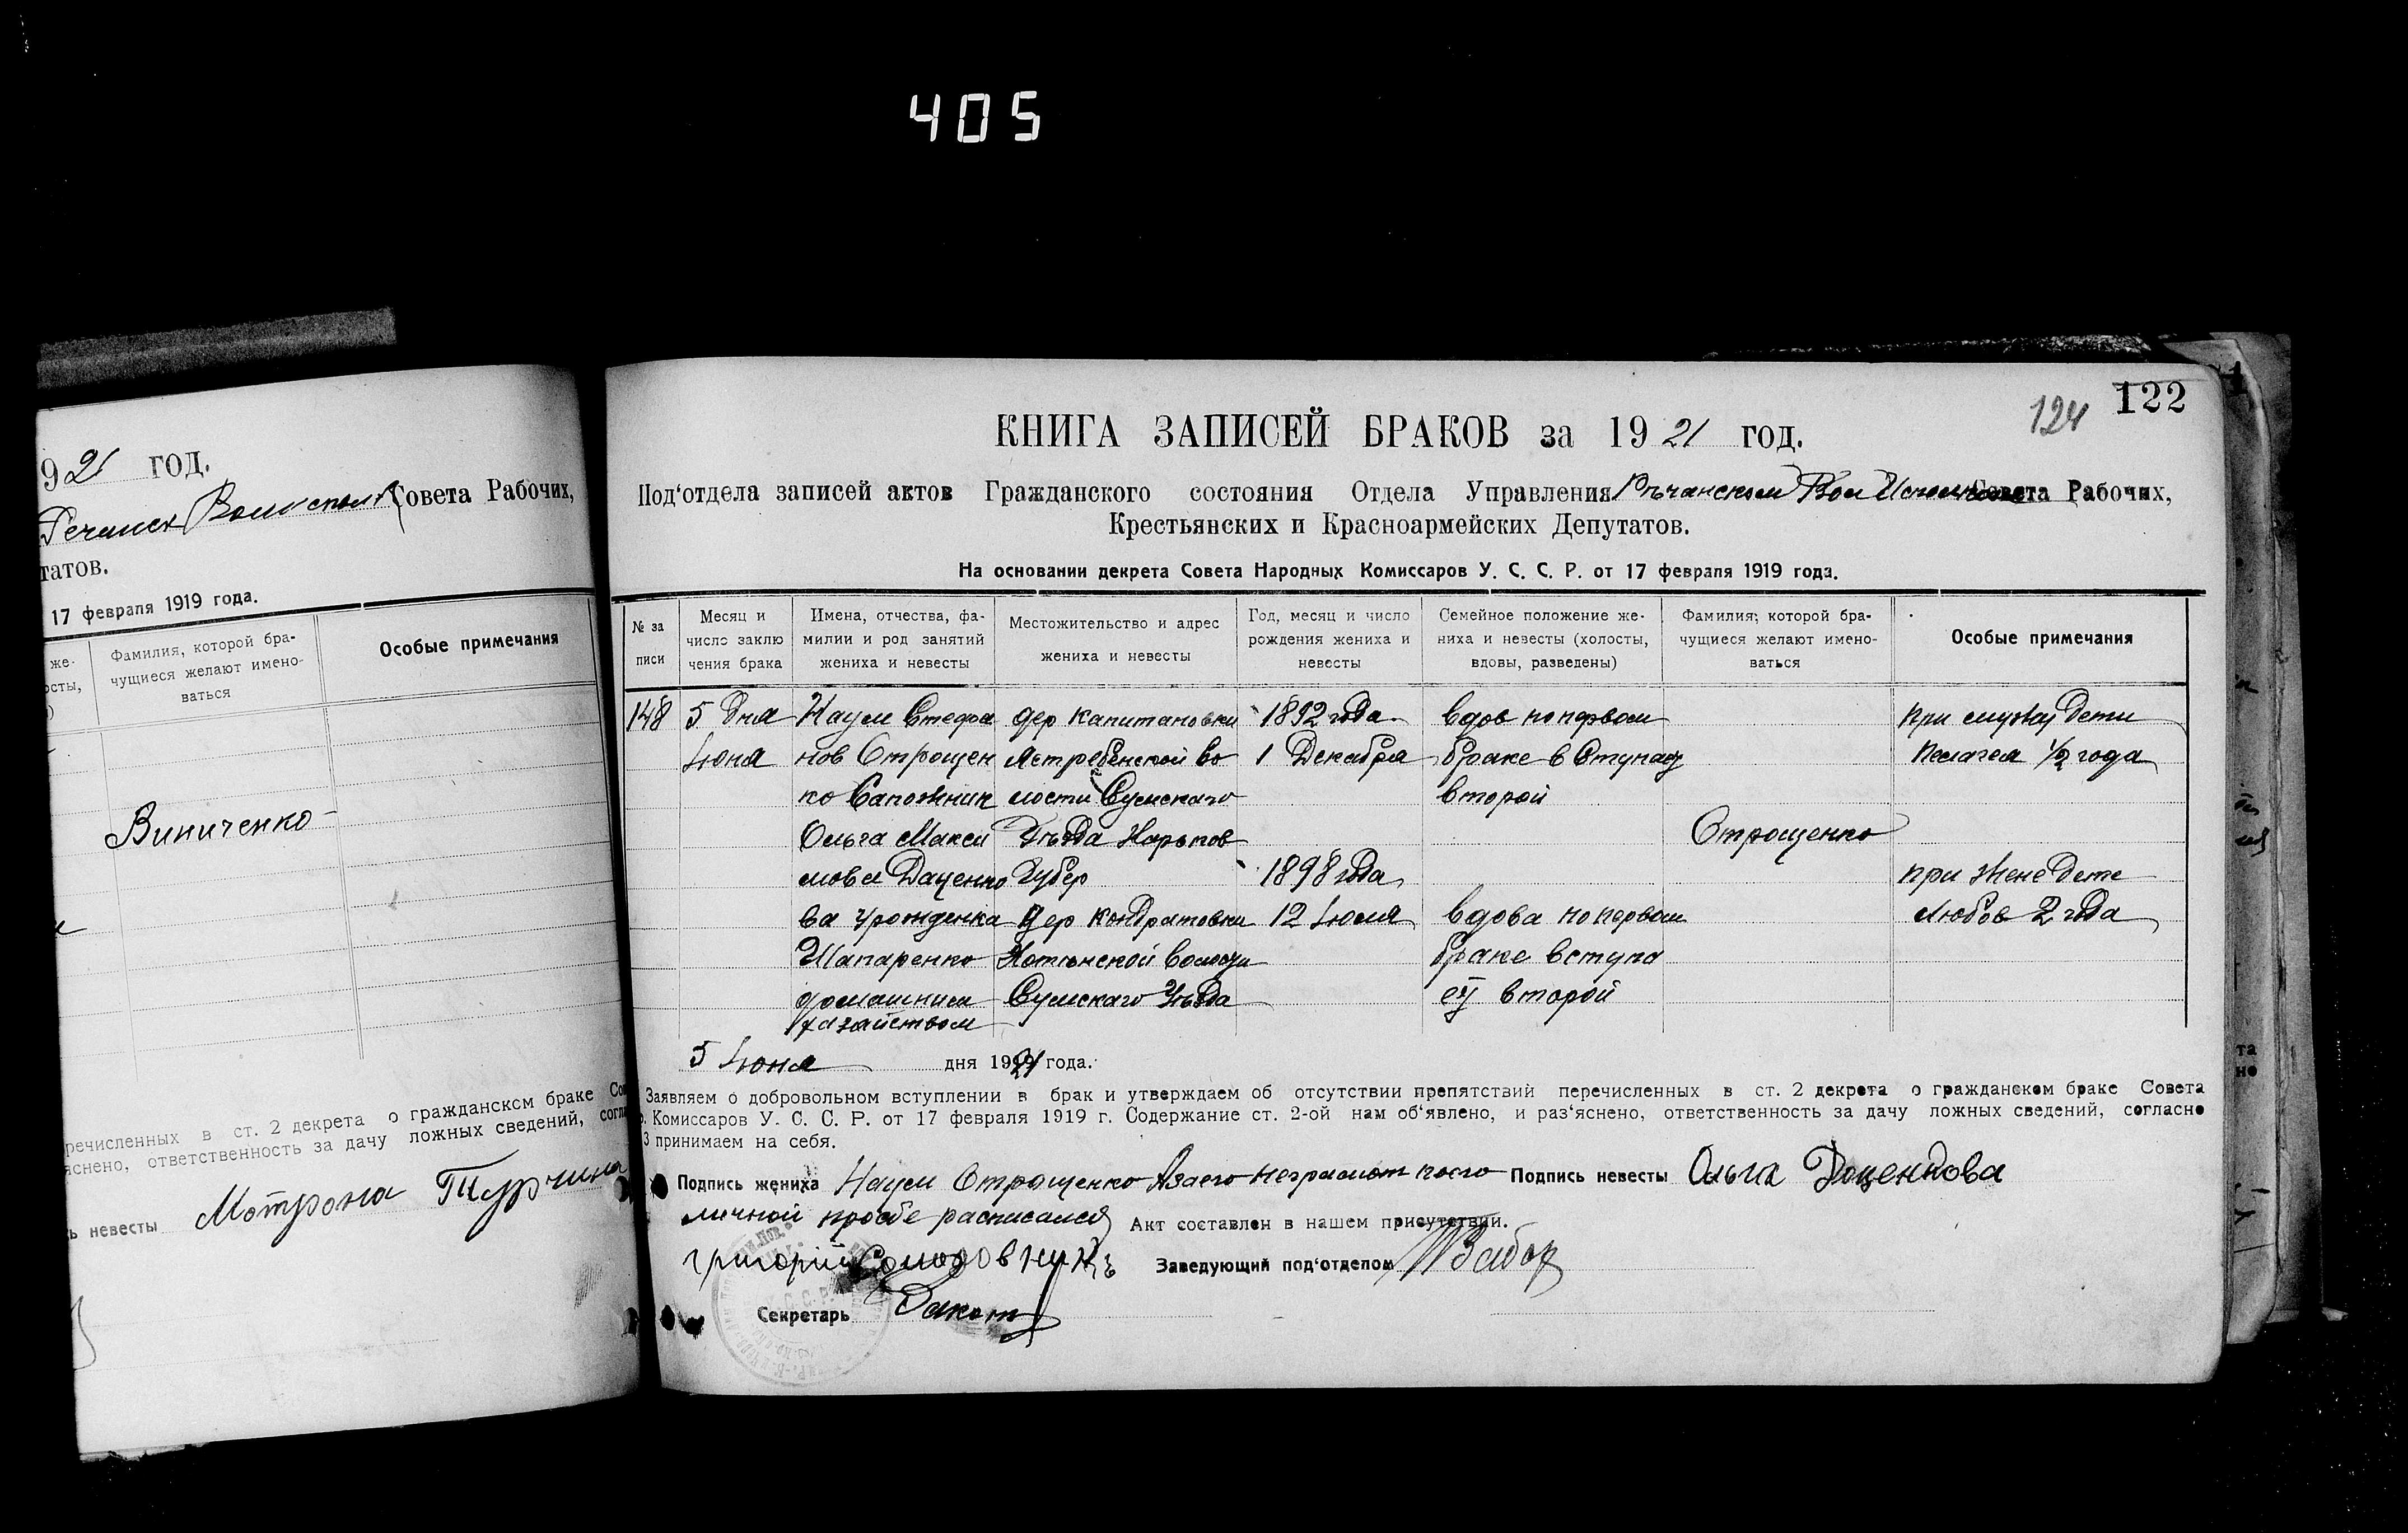 405
921 год.
Речанск Волисполк Совета Рабочих,
татов.
17 февраля 1919 года.
же-
осты,
Фамилия, которой бра-
чущиеся желают имено-
ваться
Особые примечания
Виниченко
речисленных в ст. 2 декрета о гражданском браке Со
яснено, ответственность за дачу ложных сведений, согла
ь невесты Мотрона Турчина
122
124
КНИГА ЗАПИСЕЙ БРАКОВ за 1921 год.
Под‘отдела записей актов Гражданского состояния Отдела Управления Речанском Вол Исполкоме Совета Рабочих,
Крестьянских и Красноармейских Депутатов.
На основании декрета Совета Народных Комиссаров У. С. С. Р. от 17 февраля 1919 года.
№ за
писи
Месяц и
число заклю
чения брака
Имена, отчества, фа-
милии и род занятий
жениха и невесты
Местожительство и адрес
жениха и невесты
Год, месяц и число
рождения жениха и
невесты
Семейное положение же-
ниха и невесты (холосты,
вдовы, разведены)
Фамилия, которой бра-
чущиеся желают имено-
ваться
Особые примечания
148
5 дня
Июня
Наум Стефа
нов Отрощен
ко Сапожник
Ольга Макси
мовa Даценко
ва Урожденка
Шапаренко
домашним
хазайством
дер Капитановки
Ястребенской во
лости Сумскаго
Уъзда Харьков
Губер
Дер Кондратовки
Хотънской Волости
Сумскаго Уъзда
1892 года
1 Декабря
1898 года
12 Июля
вдов по первом
браке в Ступает
второй
вдова по первом
браке вступа
ет второй
Отрощенко
при мужу дети
Пелагея 1/2 года
при жене дете
Любов 2 года
5 Июня дня 1921 года.
Заявляем о добровольном вступлении в брак и утверждаем об отсутствии препятствий перечисленных в ст. 2 декрета о гражданском браке Совета
р. Комиссаров У. С. С. Р. от 17 февраля 1919 г. Содержание ст. 2-ой нам об‘явлено, и раз‘яснено, ответственность за дачу ложных сведений, согласно
3 принимаем на себя.
Подпись жениха Наум Отрощенко А за его неграмот по его Подпись невесты Ольга Доценкова
личной прозбе расписался Акт составлен в нашем присутствии.
Григорий Солодовникъ Заведующий под‘отделом
Секретарь